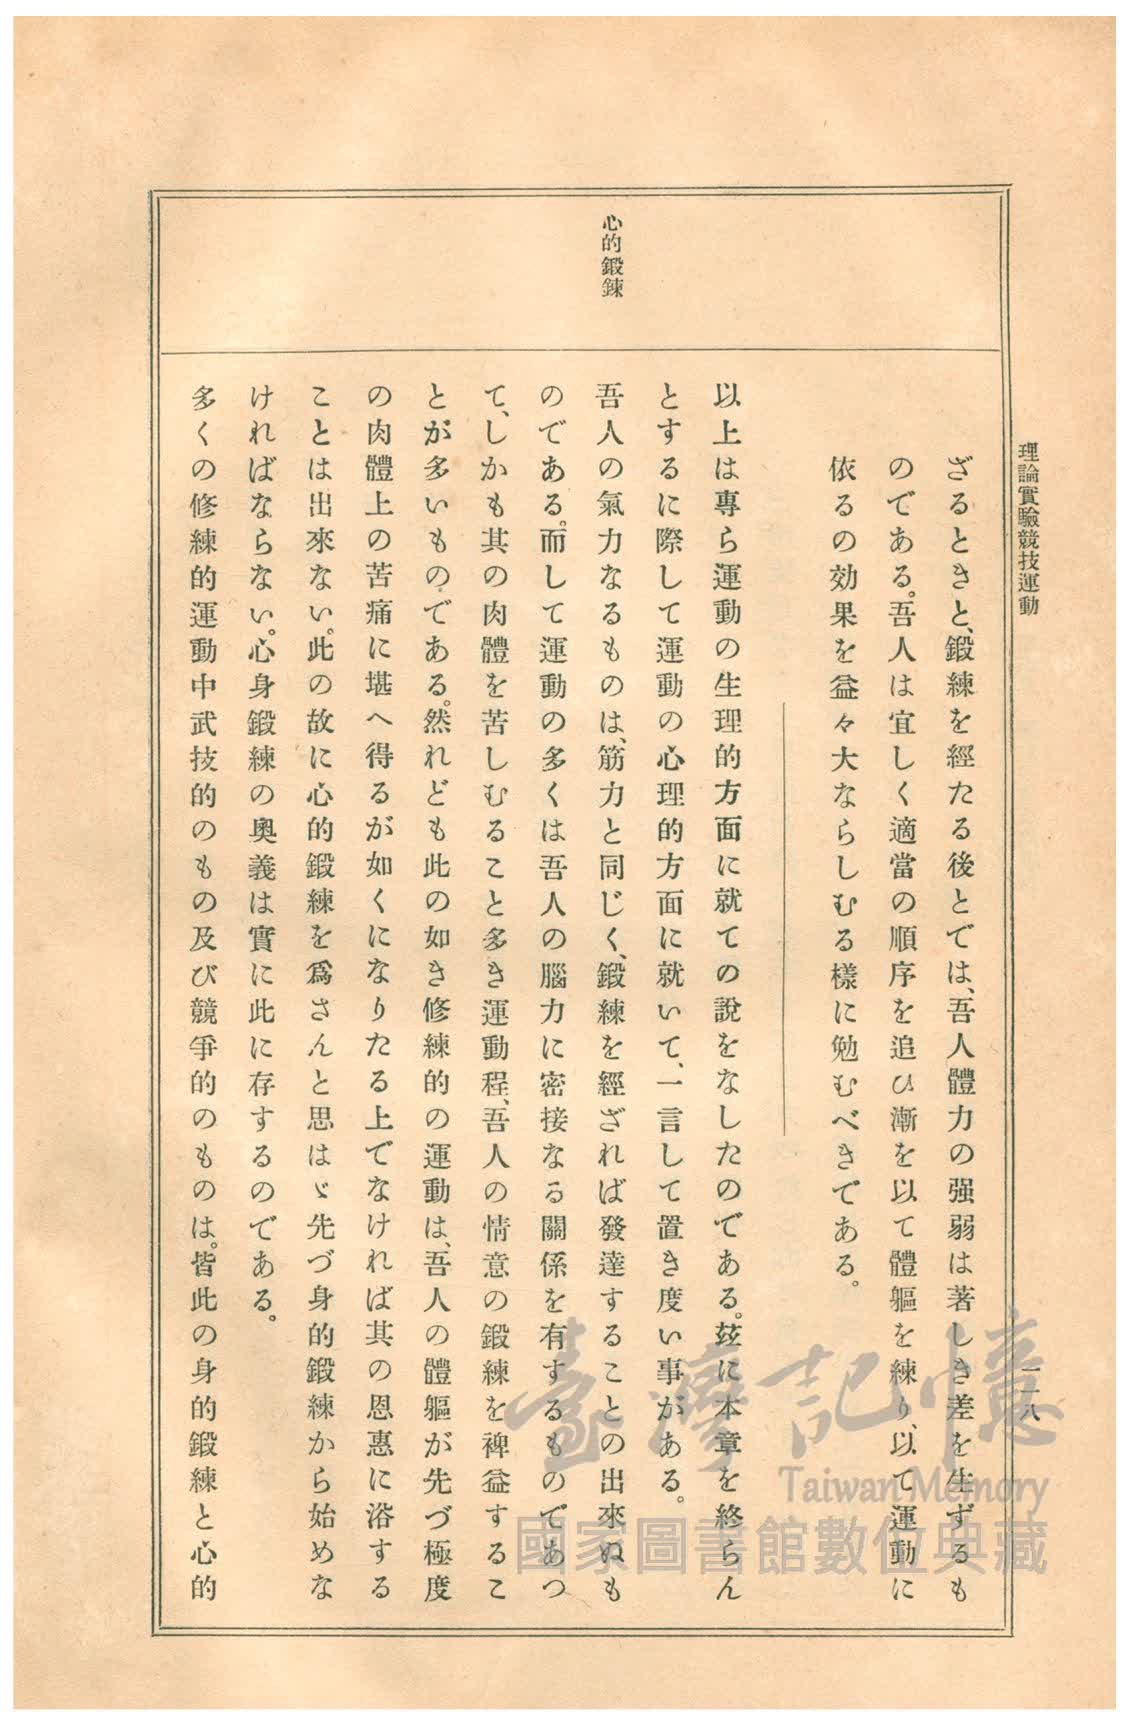 理論實驗競技運動
一二八
心的鍛鍊
ざるときと、鍛練を經たる後とでは、吾人體力の强弱は著しき差を生ずるも
のである。吾人は宜しく適當の順序を追ひ漸を以て體軀を練り、以て運動に
依るの効果を益々大ならしむる樣に勉むべきである。
以上は專ら運動の生理的方面に就ての說をなしたのである。玆に本章を終らん
とするに際して運動の心理的方面に就いて、一言して置き度い事がある。
吾人の氣力なるものは、筋力と同じく、鍛練を經ざれば發達することの出來ぬも
のである。而して運動の多くは吾人の腦力に密接なる關係を有するものであつ
て、しかも其の肉體を苦しむること多き運動程、吾人の情意の鍛練を裨益するこ
とが多いものである。然れども此の如き修練的の運動は、吾人の體軀が先づ極度
の肉體上の苦痛に堪へ得るが如くになりたる上でなければ其の恩惠に浴する
ことは出來ない。此の故に心的鍛練を爲さんと思はゞ先づ身的鍛練から始めな
ければならない。心身鍛練の奧義は實に此に存するのである。
多くの修練的運動中武技的のもの及び競爭的のものは。皆此の身的鍛練と心的
臺灣記憶
Taiwan Memory
國家圖書館數位典藏